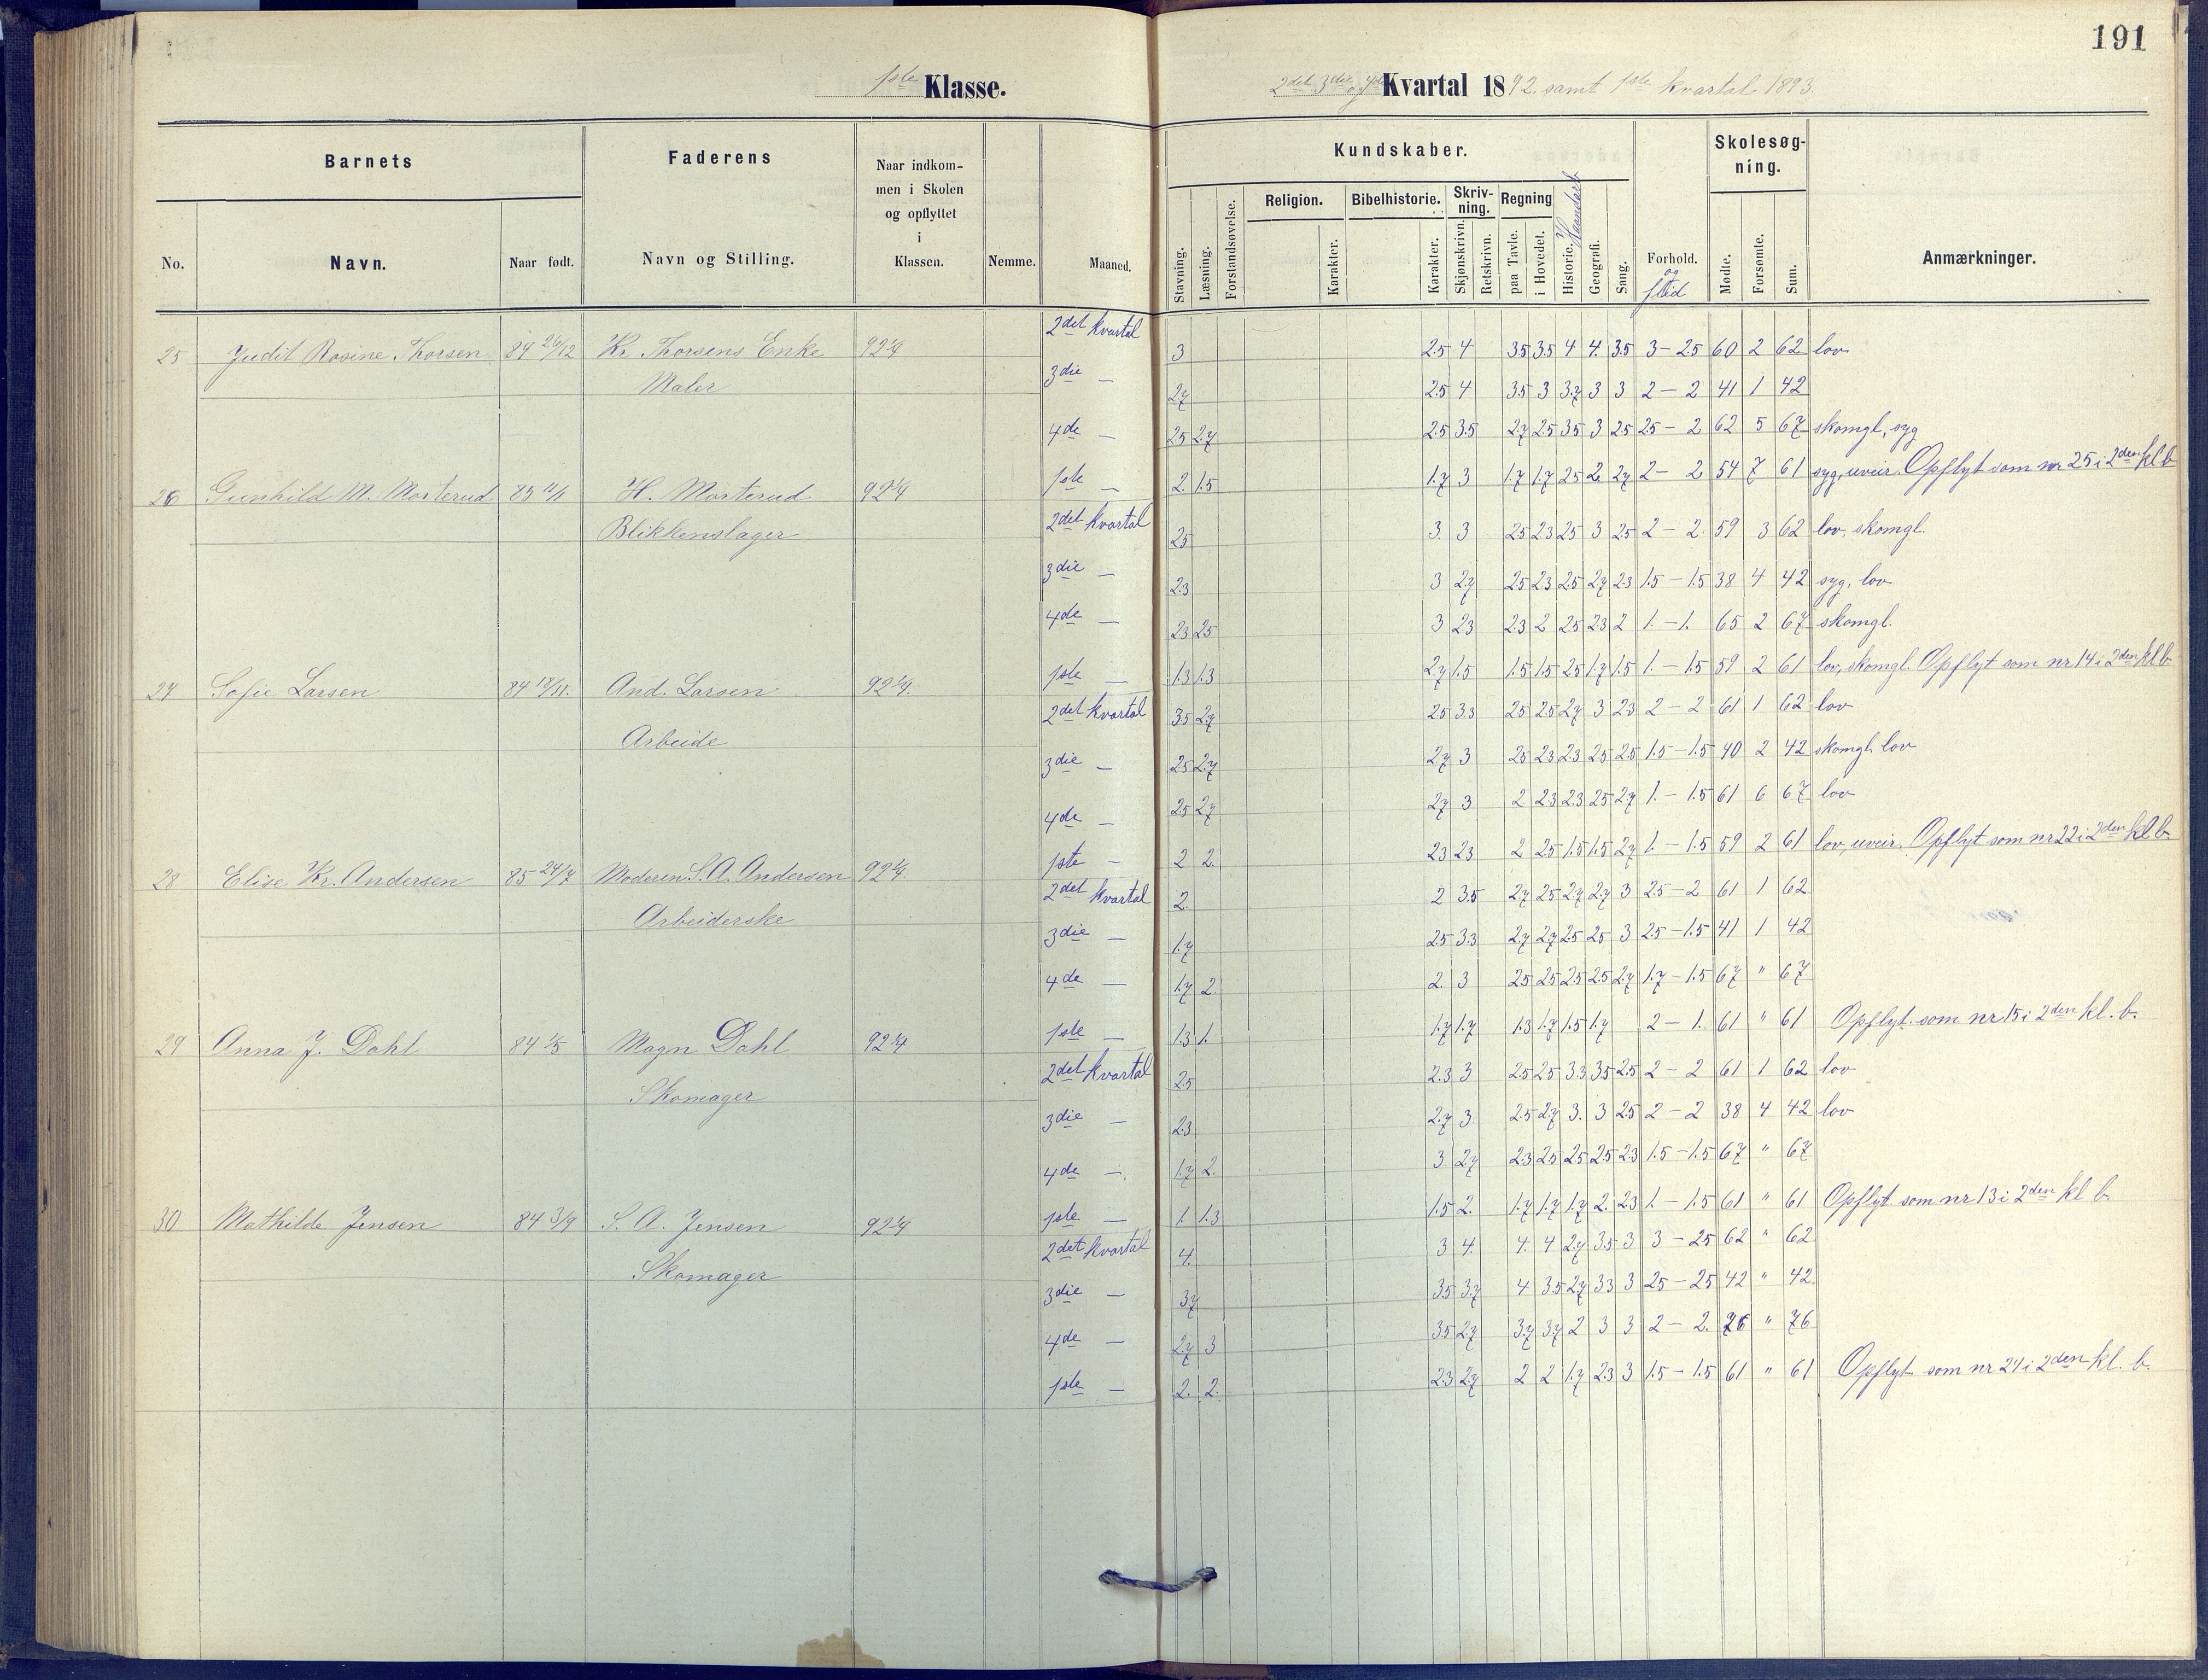 191
1ste Klasse.
2det 3die og 4de Kvartal 1892. samt 1ste kvartal 1893.
Barnets
Faderens
Naar indkommen i Skolen og opflyttet i Klassen.
Kundskaber.
Skolesøgning.
Religion. Bibelhistorie. Skrivning. Regning
No. Navn. Naar født. Navn og Stilling. Nemme. Maaned. Stavning. Læsning. Forstandsøvelse. Karakter. Karakter. Skjønskrivn. Retskrivn. paa Tavle. i Hovedet. Historie. Haandarb Geografi. Sang. Forhold. og flid Mødte. Forsømte. Sum. Anmærkninger.
25 Judit Rosine Thorsen 84 26/12 Kr. Thorsens Enke 92 1/4 2det kvartal 3 2.5 4 3.5 3.5 4 4. 3.5 3 – 2.5 60 2 62 lov
Maler 3die — 2.7 2.5 4 3.5 3 3.7 3 3 2 – 2 41 1 42
4de — 2.5 2.7 2.5 3.5 2.7 2.5 3.5 3 2.5 2.5 – 2 62 5 67 skomgl, syg
1ste — 2. 1.5 1.7 3 1.7 1.7 2.5 2 2.7 2 – 2 54 7 61 syg, uveir. Opflyt som nr 25 i 2den kl b
26 Gunhild M. Morterud 85 11/1 H. Morterud 92 1/4
Blikkenslager 2det kvartal 2.5 3. 3 2.5 2.3 2.5 3 2.5 2 – 2. 59 3 62 lov, skomgl.
3die — 2.3 3 2.7 2.5 2.3 2.5 2.7 2.3 1.5 – 1.5 38 4 42 syg, lov
4de — 2.3 2.5 3 2.3 2.3 2 2.5 2.3 2 1. – 1. 65 2 67 skomgl.
1ste — 1.3 1.3 2.7 1.5 1.5 1.5 2.5 1.7 1.5 1. – 1.5 59 2 61 lov, skomgl. Opflyt som nr 14 i 2den kl b
27 Sofie Larsen 84 18/11. And. Larsen 92 1/4.
2det kvartal 3.5 2.7 2.5 3.3 2.5 2.5 2.7 3 2.3 2 – 2 61 1 62 lov
Arbeide 3die — 2.5 2.7 2.7 3 2.5 2.3 2.3 2.5 2.5 1.5 – 1.5 40 2 42 skomgl. lov
4de — 2.5 2.7 2.7 3 2 2.3 2.3 2.5 2.7 1. – 1.5 61 6 67 lov
1ste — 2 2. 2.3 2.3 2 2.5 1.5 1.5 2.7 1. – 1.5 59 2 61 lov, uveir. Opflyt som nr 22 i 2den kl b.
28 Elise Kr. Andersen 85 24/7 Moderen S. A. Andersen 92 1/4
2det kvartal 2. 2 3.5 2.7 2.5 2.7 2.7 3 2.5 – 2 61 1 62
Arbeiderske 3die — 1.7 2.5 3.3 2.7 2.7 2.5 2.5 3 2.5 – 1.5 41 1 42
4de — 1.7 2. 2. 3 2.5 2.5 2.5 2.5 2.7 1.7 – 1.5 67 " 67
1ste — 1.3 1. 1.7 1.7 1.3 1.7 1.5 1.7 2 – 1. 61 " 61 Opflyt. som nr 15 i 2den kl. b.
29 Anna J. Dahl 84 1/5 Magn Dahl 92 1/4
2det kvartal 2.5 2.3 3 2.5 2.5 3.3 3.5 2.5 2 – 2 61 1 62 lov
Skomager 3die — 2.3 2.7 3. 2.5 2.7 3. 3 2.5 2 – 2 38 4 42 lov
4de —. 1.7 2. 3. 2.7 2.3 2.5 2.5 2.5 2.3 1.5 – 1.5 67 " 67
1ste — 1. 1.3 1.5 2. 1.7 1.7 1.7 2. 2.3 1. – 1.5 61 " 61 Opflyt som nr 13 i 2den kl b.
30 Mathilde Jensen 84 3/9 S. A. Jensen 92 1/4
2det kvartal 4. 3 4. 4. 4 2.7 3.5 3 3 – 2.5 62 " 62
Skomager 3die — 3.7 3.5 3.7 4 3.5 2.7 3.3 3 2.5 – 2.5 42 " 42.
4de — 2.7 3 3.5 2.7 3.7 3.7 2 3 3 2 – 2. 76 " 76
1ste — 2. 2. 2.3 2.7 2 2 1.7 2.3 3 1.5 – 1.5 61 " 61 Opflyt som nr 24 i 2den kl. b.